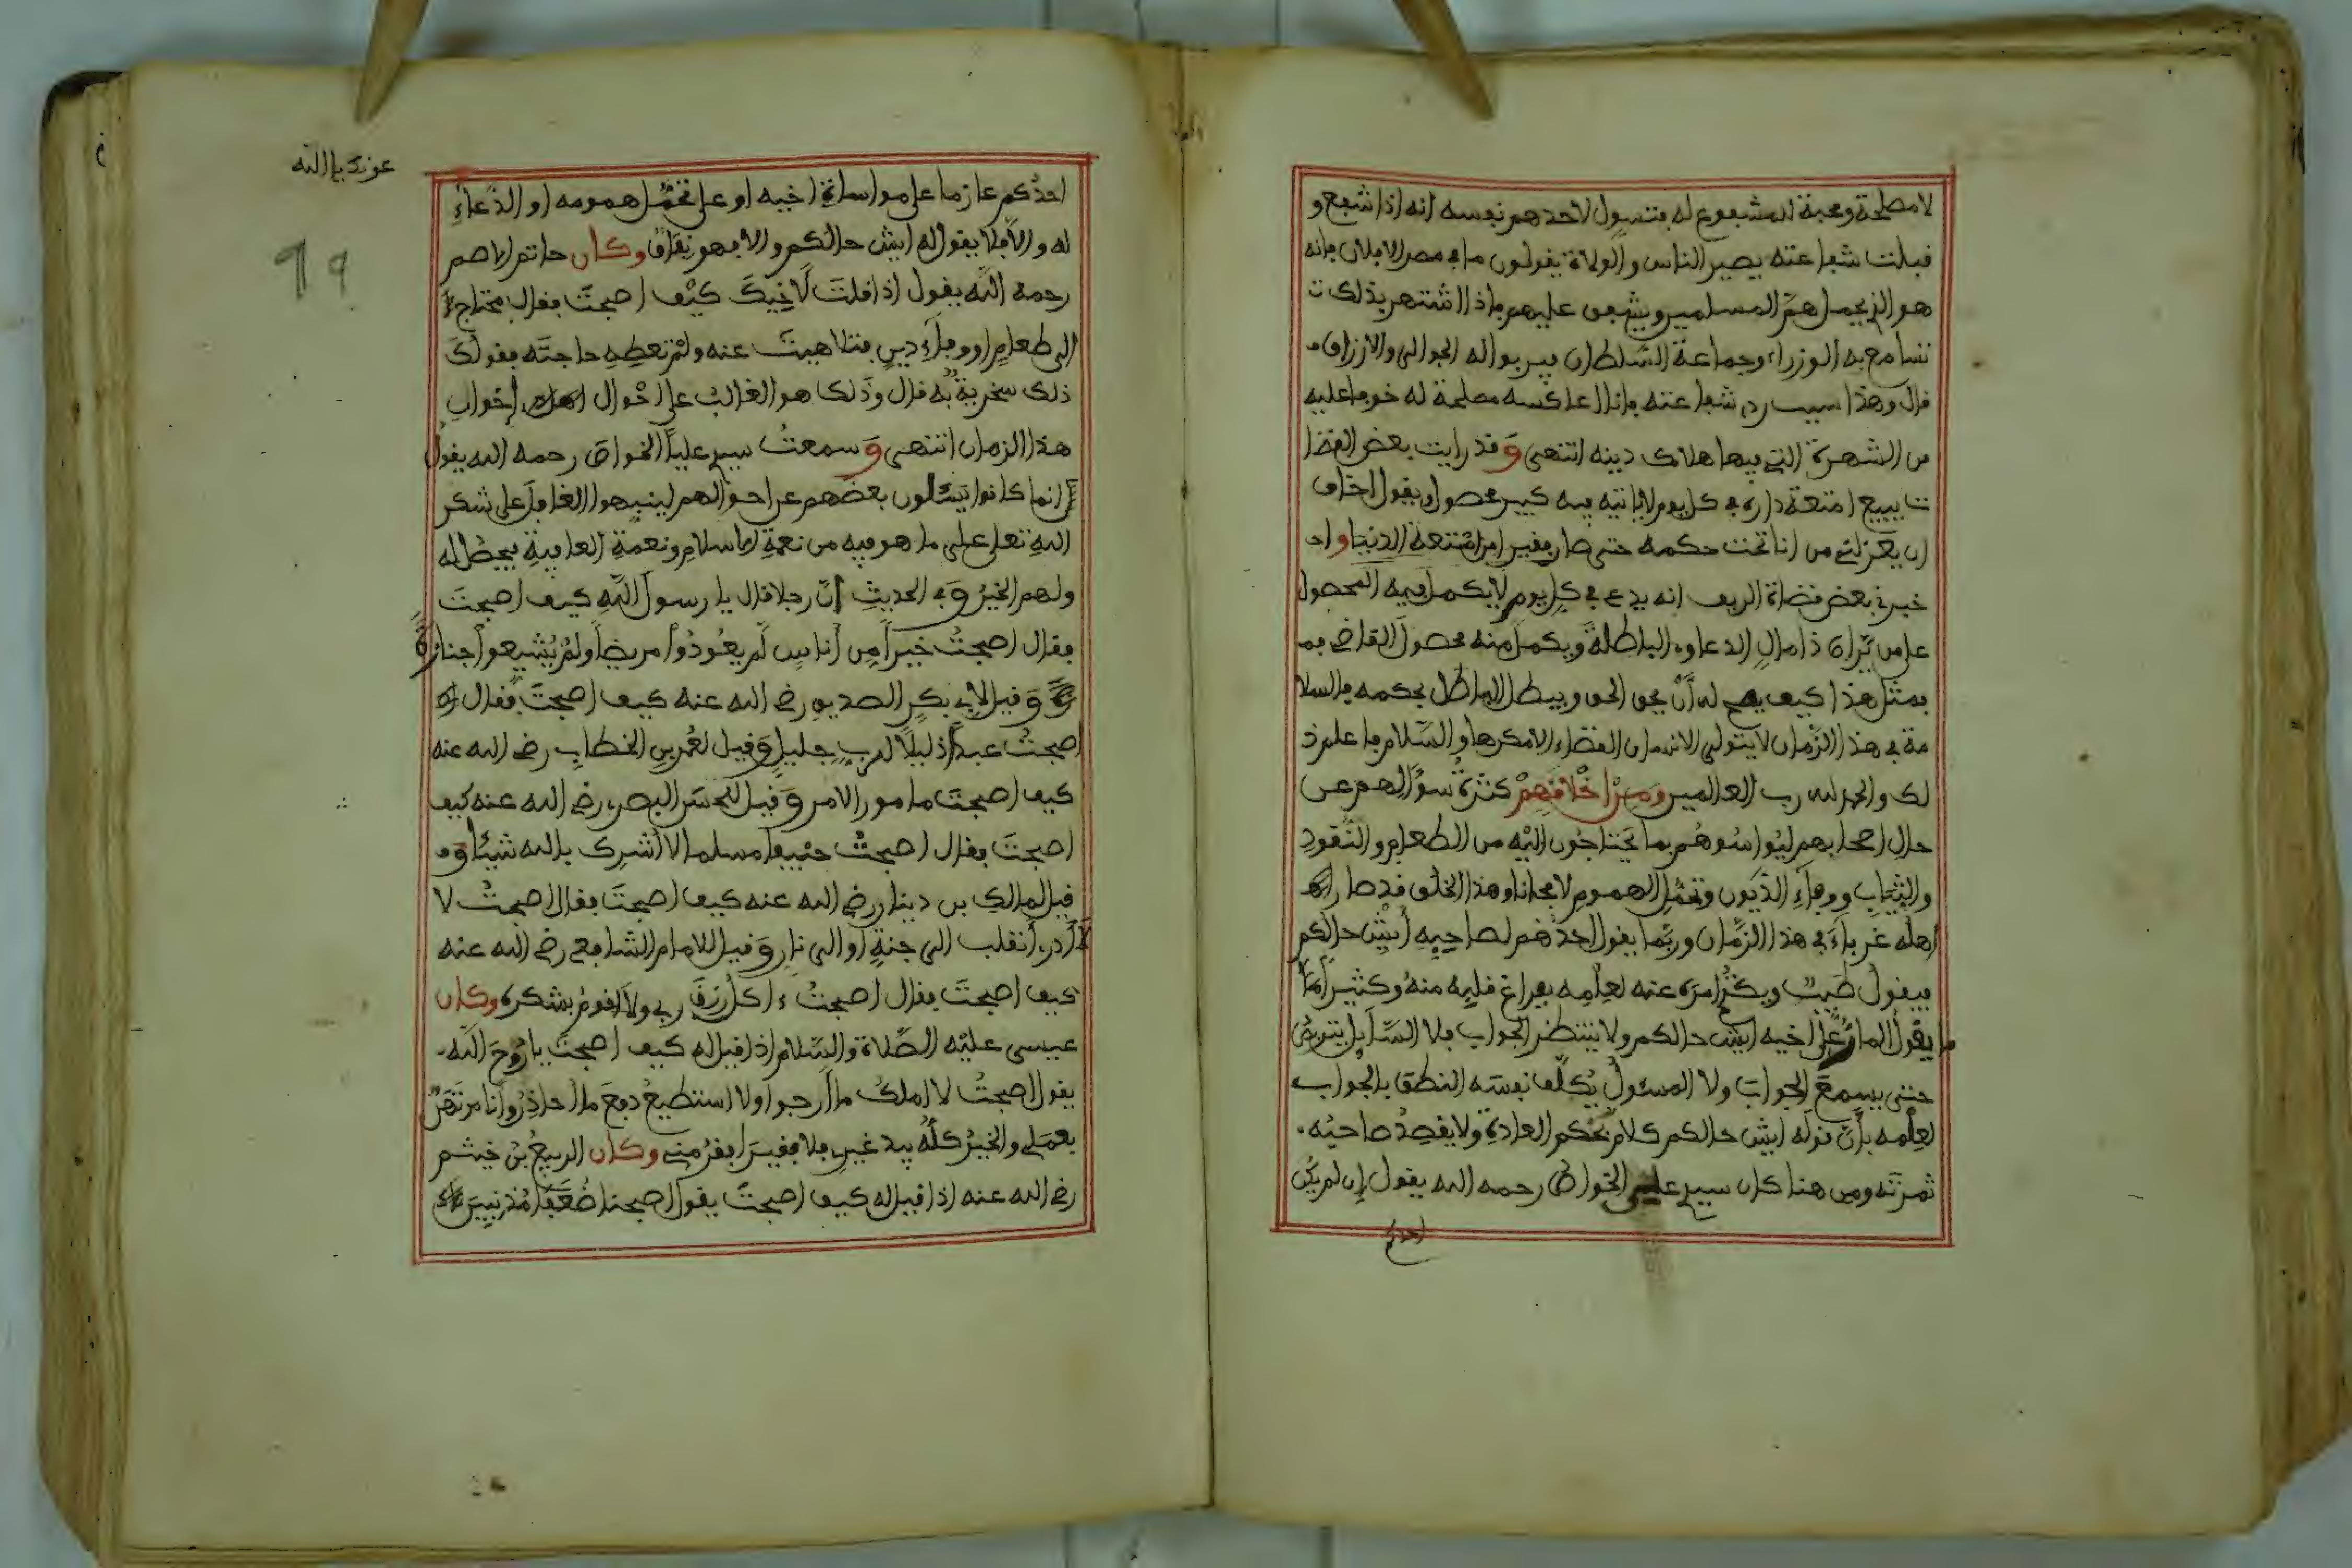 لا مصلحة ومحبة للمشفوع له فتسول لاحدهم نفسه انه اذا شفع و
قبلت شفاعته يصير الناس والولاة يقولون ما في مصر الا فلان فانه
هو الذي يحمل هم المسلمين ويشفع عليهم فاذا اشتهر بذلك ت
تسامع به الوزراء وجماعة السلطان فيرتبوا له الجوالي والارزاق
قال وهذا سبب ردي شفاعته فاننا لعاكسه مصلحة له خوفا عليه
من الشهرة التي فيها هلاك دينه انتهى وقد رايت بعض القضا
ت يبيع امتعة داره في كل يوم لا ياتيه فيه كبير محصول ويقول اخاف
ان يعزلني من انا تحت حكمه حتى صار فقيرا من امتعة الدنيا واخ
خبرني بعض قضاة الريف انه يدعي في كل يوم لا يكمل فيه المحصول
على من يراه ذا مال الدعاوي الباطلة ويكمل منه محصول القاضي فم
فمثل هذا كيف يصح له أن يحق الحق ويبطل الباطل بحكمه فالسلا
مة في هذا الزمان لا يتولى الانسان القضاء الا مكرها والسلام فاعلم ذ
لك والحمد لله رب العالمين ومن اخلاقهم كثرة سؤالهم عن
حال اصحابهم ليواسوهم بما يحتاجون إليه من الطعام والنقود
والثياب ووفاء الديون وتحمل الهموم لا مجانا وهذا الخلق قد صار
اهله غرباء في هذا الزمان وربما يقول احدهم لصاحبه أيش حالكم
فيقول طيب ويكثر امره عنه لعلمه بفراغ قلبه منه وكثيرا
ما يقول المار على اخيه ايش حالكم ولا ينتظر الجواب فلا السائل يتربص
حتى يسمع الجواب ولا المسئول يكلف نفسه النطق بالجواب
لعلمه بأن قوله ايش حالكم كلام بحكم العادة ولا يقصد صاحبه
ثمرته ومن هنا كان سيدي علي الخواص رحمه الله يقول إن لم يكن
احدكم
عزت بالله
99
احدكم عازما على مواساة اخيه او على تحمل همومه او الدعاء
له والا فلا يقول له ايش حالكم والا فهو نفاق وكان حاتم الاصم
رحمه الله يقول اذا قلت لأخيك كيف اصبحت فقال محتاج
الى طعام او وفاء دين فتلاهيت عنه ولم تعطه حاجته فقولك
ذلك سخرية به قال وذلك هو الغالب على احوال إخوان
هذا الزمان انتهى وسمعت سيدي عليا الخواص رحمه الله يقول
انما كانوا يتسألون بعضهم عن احوالهم لينبهوا الغافل على شكر
الله تعلى على ما هو فيه من نعمة الاسلام ونعمة العافية فيحصل له
ولهم الخير وفي الحديث أن رجلا قال يا رسول الله كيف اصبحت
فقال اصبحت خيرا من أناس لم يعودوا مريضا ولم يشيعوا جنازة
وقيل لابي بكر الصديق رضي الله عنه كيف اصبحت فقال
اصبحت عبدا ذليلا لرب جليل وقيل لعمر بن الخطاب رضي الله عنه
كيف اصبحت مامور الامر وقيل للحسن البصري رضي الله عنه كيف
اصبحت فقال اصبحت حنيفا مسلما لا أشرك بالله شيئا و
قيل لمالك بن دينار رضي الله عنه كيف اصبحت فقال اصبحت لا
أدري أنقلب الى جنة او الى نار وقيل للامام الشافعي رضي الله عنه
كيف اصبحت فقال اصبحت ءاكل رزق ربي ولا اقوم بشكره وكان
عيسى عليه الصلاة والسلام اذا قيل له كيف اصبحت يا روح الله
يقول اصبحت لا املك ما أرجوا ولا استطيع دفع ما احاذر وانا مرتهن
بعملي والخير كله بيد غيري فلا فقير افقر مني وكان الربيع بن خيثم
رضي الله عنه اذا قيل له كيف اصبحت يقول اصبحنا ضعفا مذنبين